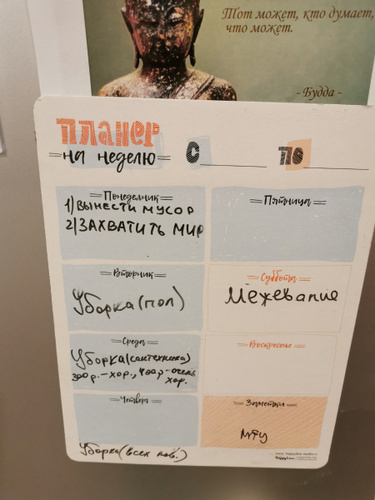 Тот может, кто думает,
что может.
- Будда -
ПЛАНЕР
НА НЕДЕЛЮ С ПО
Понедельник
1) ВЫНЕСТИ МУСОР
2) ЗАХВАТИТЬ МИР
Вторник
Уборка (пол)
Среда
Уборка (сантехника)
300 р. - хор., 400 р. - очень
хор.
Четверг
Уборка (всех пов.)
Пятница
Суббота
Межевание
Воскресенье
Заметки